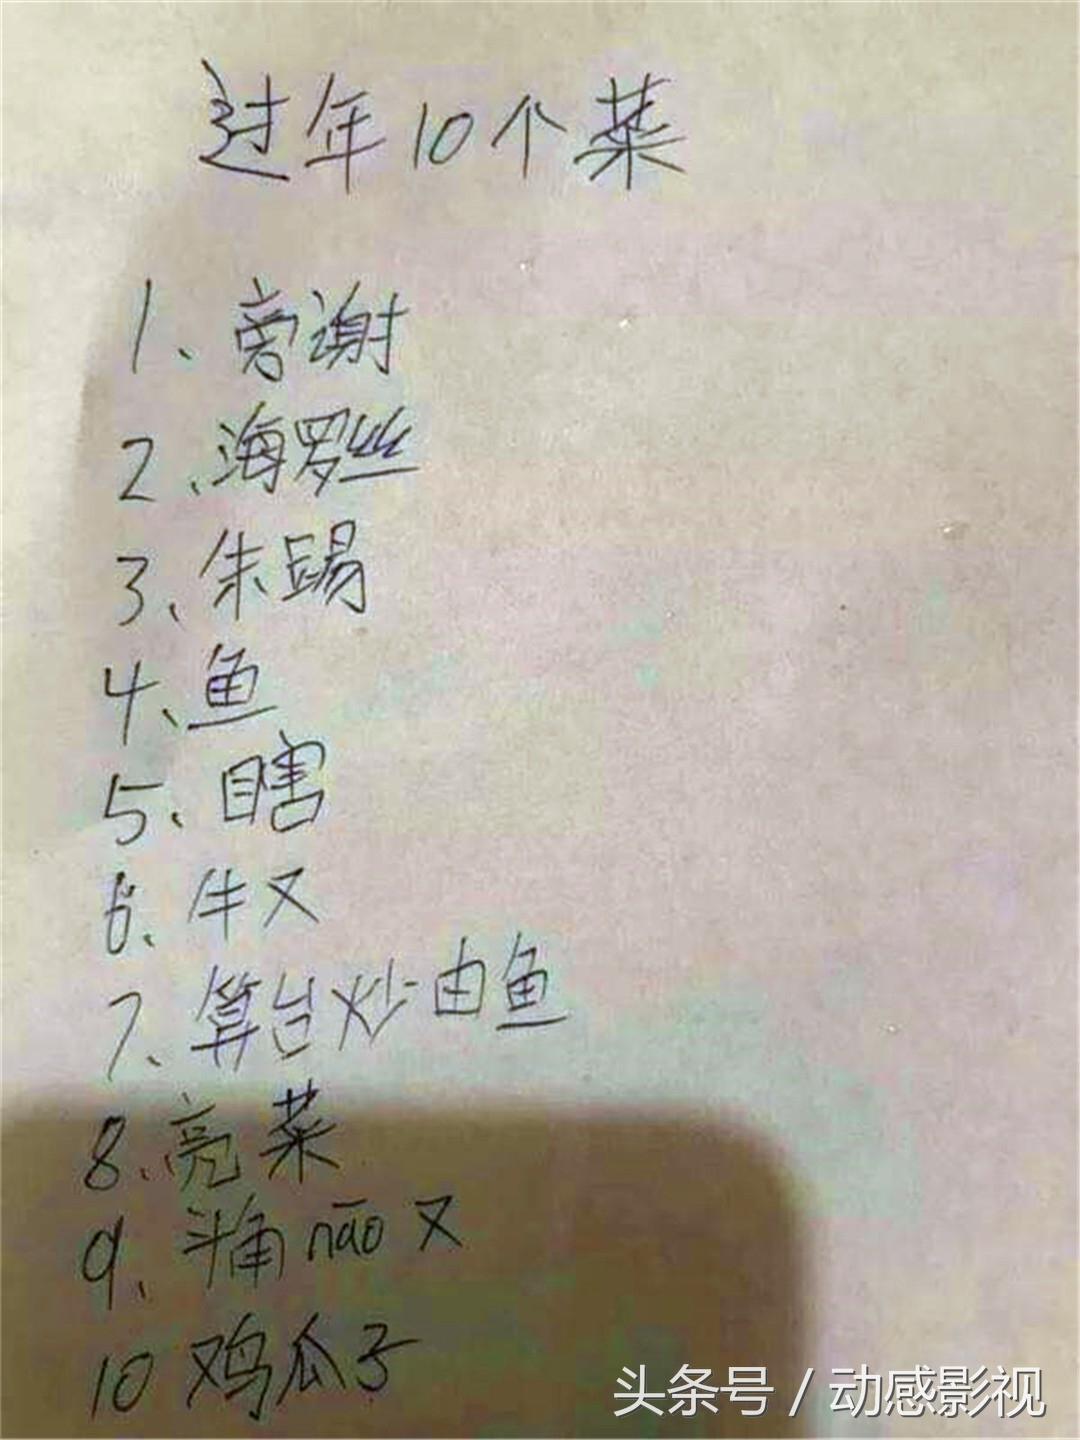 过年10个菜
1、旁谢
2、海罗丝
3、朱踢
4、鱼
5、瞎
6、牛又
7、算台炒由鱼
8、亮菜
9、斗角nāo又
10 鸡瓜子
头条号 / 动感影视